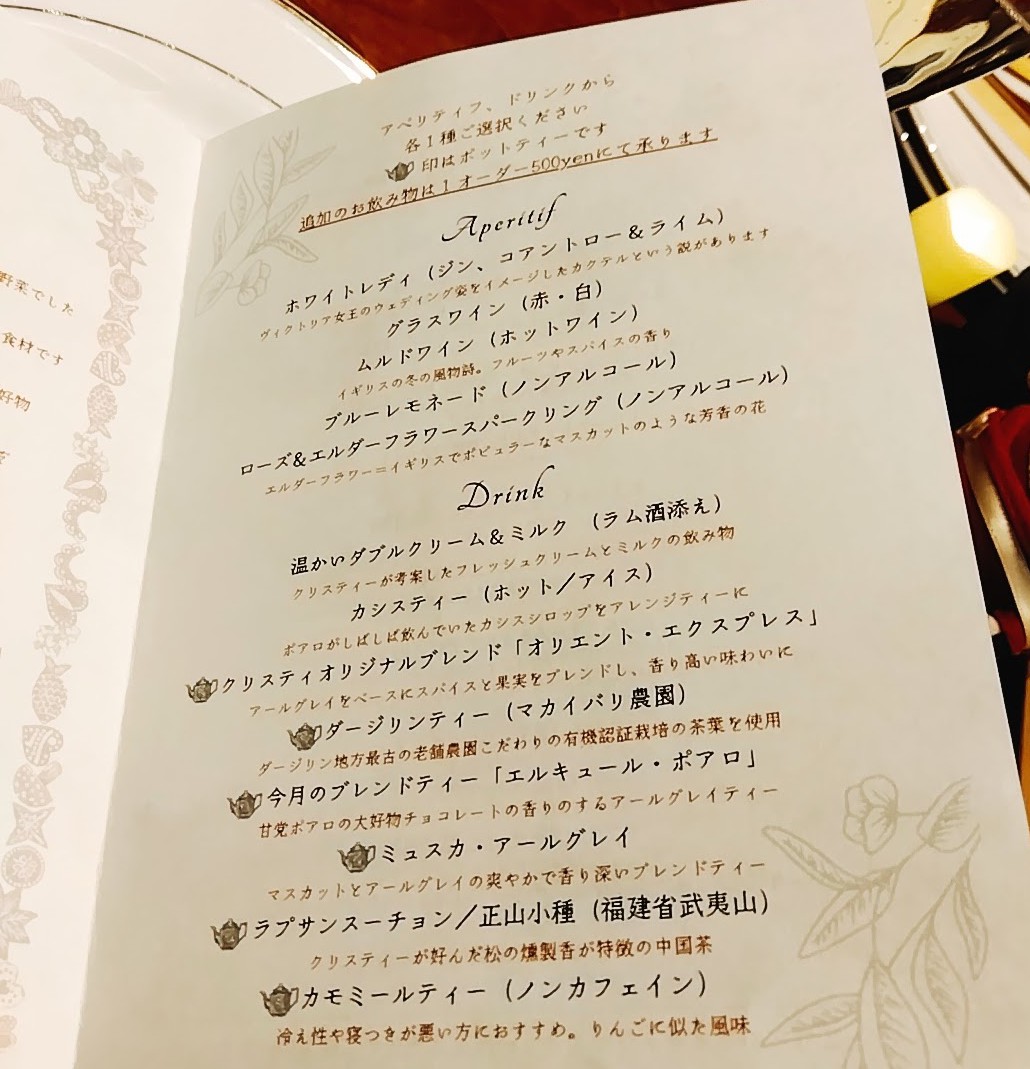 野菜でした
食材です
好物
アペリティフ、ドリンクから
各1種ご選択ください
印はポットティーです
追加のお飲み物は1オーダー500yenにて承ります
Aperitif
ホワイトレディ（ジン、コアントロー＆ライム）
ヴィクトリア女王のウェディング姿をイメージしたカクテルという説があります
グラスワイン（赤・白）
ムルドワイン（ホットワイン）
イギリスの冬の風物詩。フルーツやスパイスの香り
ブルーレモネード（ノンアルコール）
ローズ＆エルダーフラワースパークリング（ノンアルコール）
エルダーフラワー＝イギリスでポピュラーなマスカットのような芳香の花
Drink
温かいダブルクリーム＆ミルク （ラム酒添え）
クリスティーが考案したフレッシュクリームとミルクの飲み物
カシスティー（ホット／アイス）
ポアロがしばしば飲んでいたカシスシロップをアレンジティーに
クリスティオリジナルブレンド「オリエント・エクスプレス」
アールグレイをベースにスパイスと果実をブレンドし、香り高い味わいに
ダージリンティー（マカイバリ農園）
ダージリン地方最古の老舗農園こだわりの有機認証栽培の茶葉を使用
今月のブレンドティー「エルキュール・ポアロ」
甘党ポアロの大好物チョコレートの香りのするアールグレイティー
ミュスカ・アールグレイ
マスカットとアールグレイの爽やかで香り深いブレンドティー
ラプサンスーチョン／正山小種（福建省武夷山）
クリスティーが好んだ松の燻製香が特徴の中国茶
カモミールティー（ノンカフェイン）
冷え性や寝つきが悪い方におすすめ。りんごに似た風味